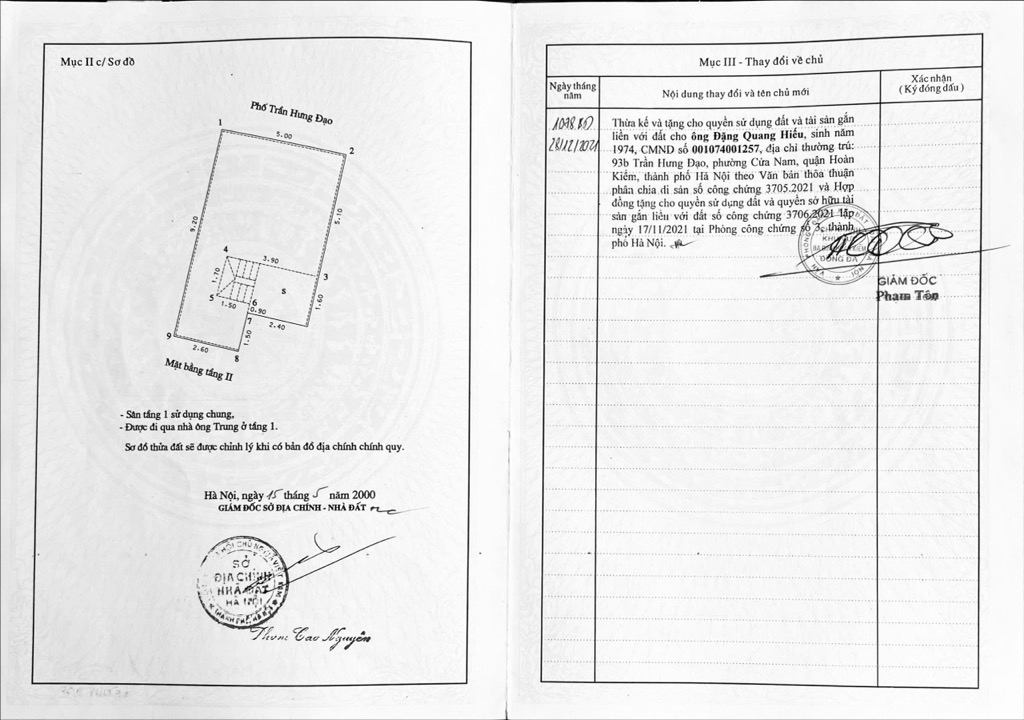 Mục II c/ Sơ đồ
Phố Trần Hưng Đạo
1
5.00
2
9.20
5.10
4
3.90
3
1.70
S
1.60
5
1.50
6
0.90
7
2.40
1.50
9
2.60
8
Mặt bằng tầng II
- Sân tầng 1 sử dụng chung,
- Được đi qua nhà ông Trung ở tầng 1.
Sơ đồ thửa đất sẽ được chỉnh lý khi có bản đồ địa chính chính quy.
Hà Nội, ngày 15 tháng 5 năm 2000
GIÁM ĐỐC SỞ ĐỊA CHÍNH - NHÀ ĐẤT
SỞ
ĐỊA CHÍNH
NHÀ ĐẤT
HÀ NỘI
Cao Nguyên
Mục III - Thay đổi về chủ
Ngày tháng
năm
Nội dung thay đổi và tên chủ mới
Xác nhận
( Ký đóng dấu )
1098.BD
28/12/2021
Thừa kế và tặng cho quyền sử dụng đất và tài sản gắn
liền với đất cho ông Đặng Quang Hiếu, sinh năm
1974, CMND số 001074001257, địa chỉ thường trú:
93b Trần Hưng Đạo, phường Cửa Nam, quận Hoàn
Kiếm, thành phố Hà Nội theo Văn bản thỏa thuận
phân chia di sản số công chứng 3705.2021 và Hợp
đồng tặng cho quyền sử dụng đất và quyền sở hữu tài
sản gắn liền với đất số công chứng 3706.2021 lập
ngày 17/11/2021 tại Phòng công chứng số 3, thành
phố Hà Nội.
ĐỐNG ĐA
GIÁM ĐỐC
Phạm Tôn